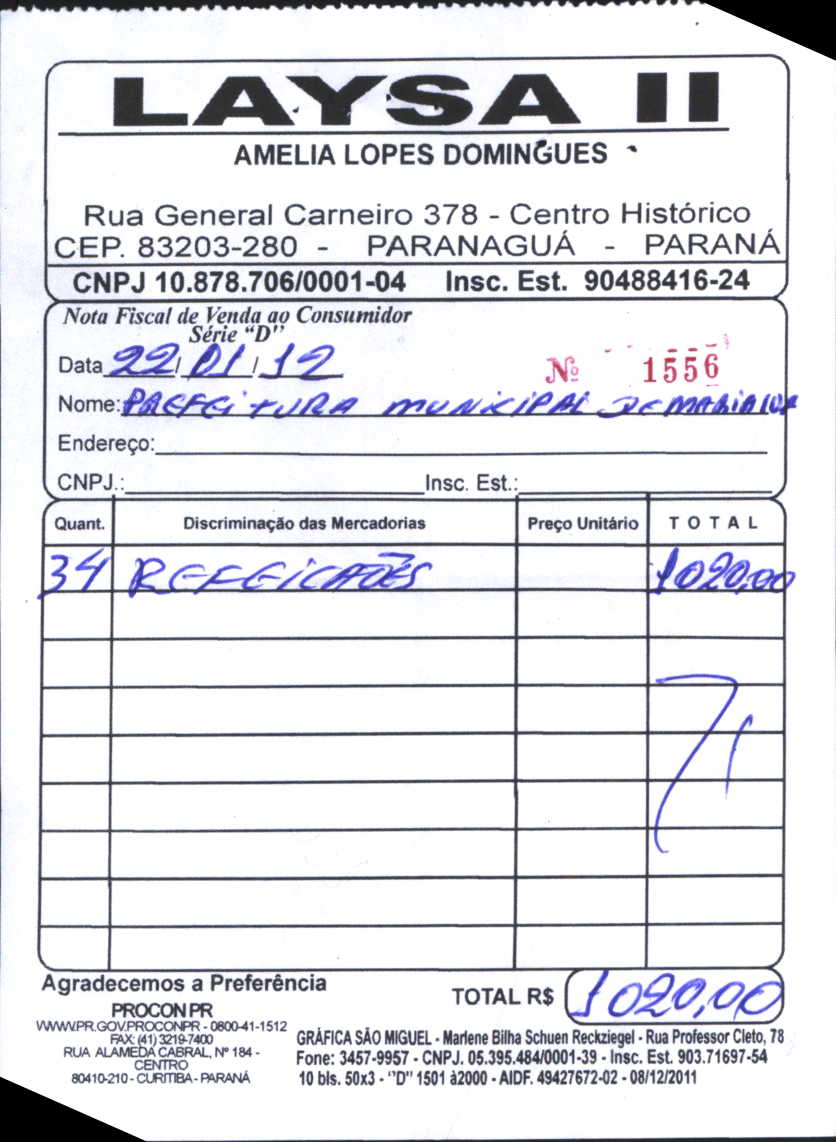 LAYSA II
AMELIA LOPES DOMINGUES
Rua General Carneiro 378 - Centro Histórico
CEP. 83203-280 - PARANAGUÁ - PARANÁ
CNPJ 10.878.706/0001-04 Insc. Est. 90488416-24
Nota Fiscal de Venda ao Consumidor
Série "D"
Data 22/01/12 Nº 1556
Nome: PREFEITURA MUNICIPAL DE
Endereço:
CNPJ.: Insc. Est.:
Quant. Discriminação das Mercadorias Preço Unitário TOTAL
34 REFEICAÕES 1020,00
Agradecemos a Preferência
TOTAL R$ 1020,00
PROCON PR
WWW.PR.GOV.PROCONPR - 0800-41-1512
FAX: (41) 3219-7400
RUA ALAMEDA CABRAL, Nº 184 -
CENTRO
80410-210 - CURITIBA - PARANÁ
GRÁFICA SÃO MIGUEL - Marlene Bilha Schuen Reckziegel - Rua Professor Cleto, 78
Fone: 3457-9957 - CNPJ. 05.395.484/0001-39 - Insc. Est. 903.71697-54
10 bls. 50x3 - "D" 1501 à2000 - AIDF. 49427672-02 - 08/12/2011